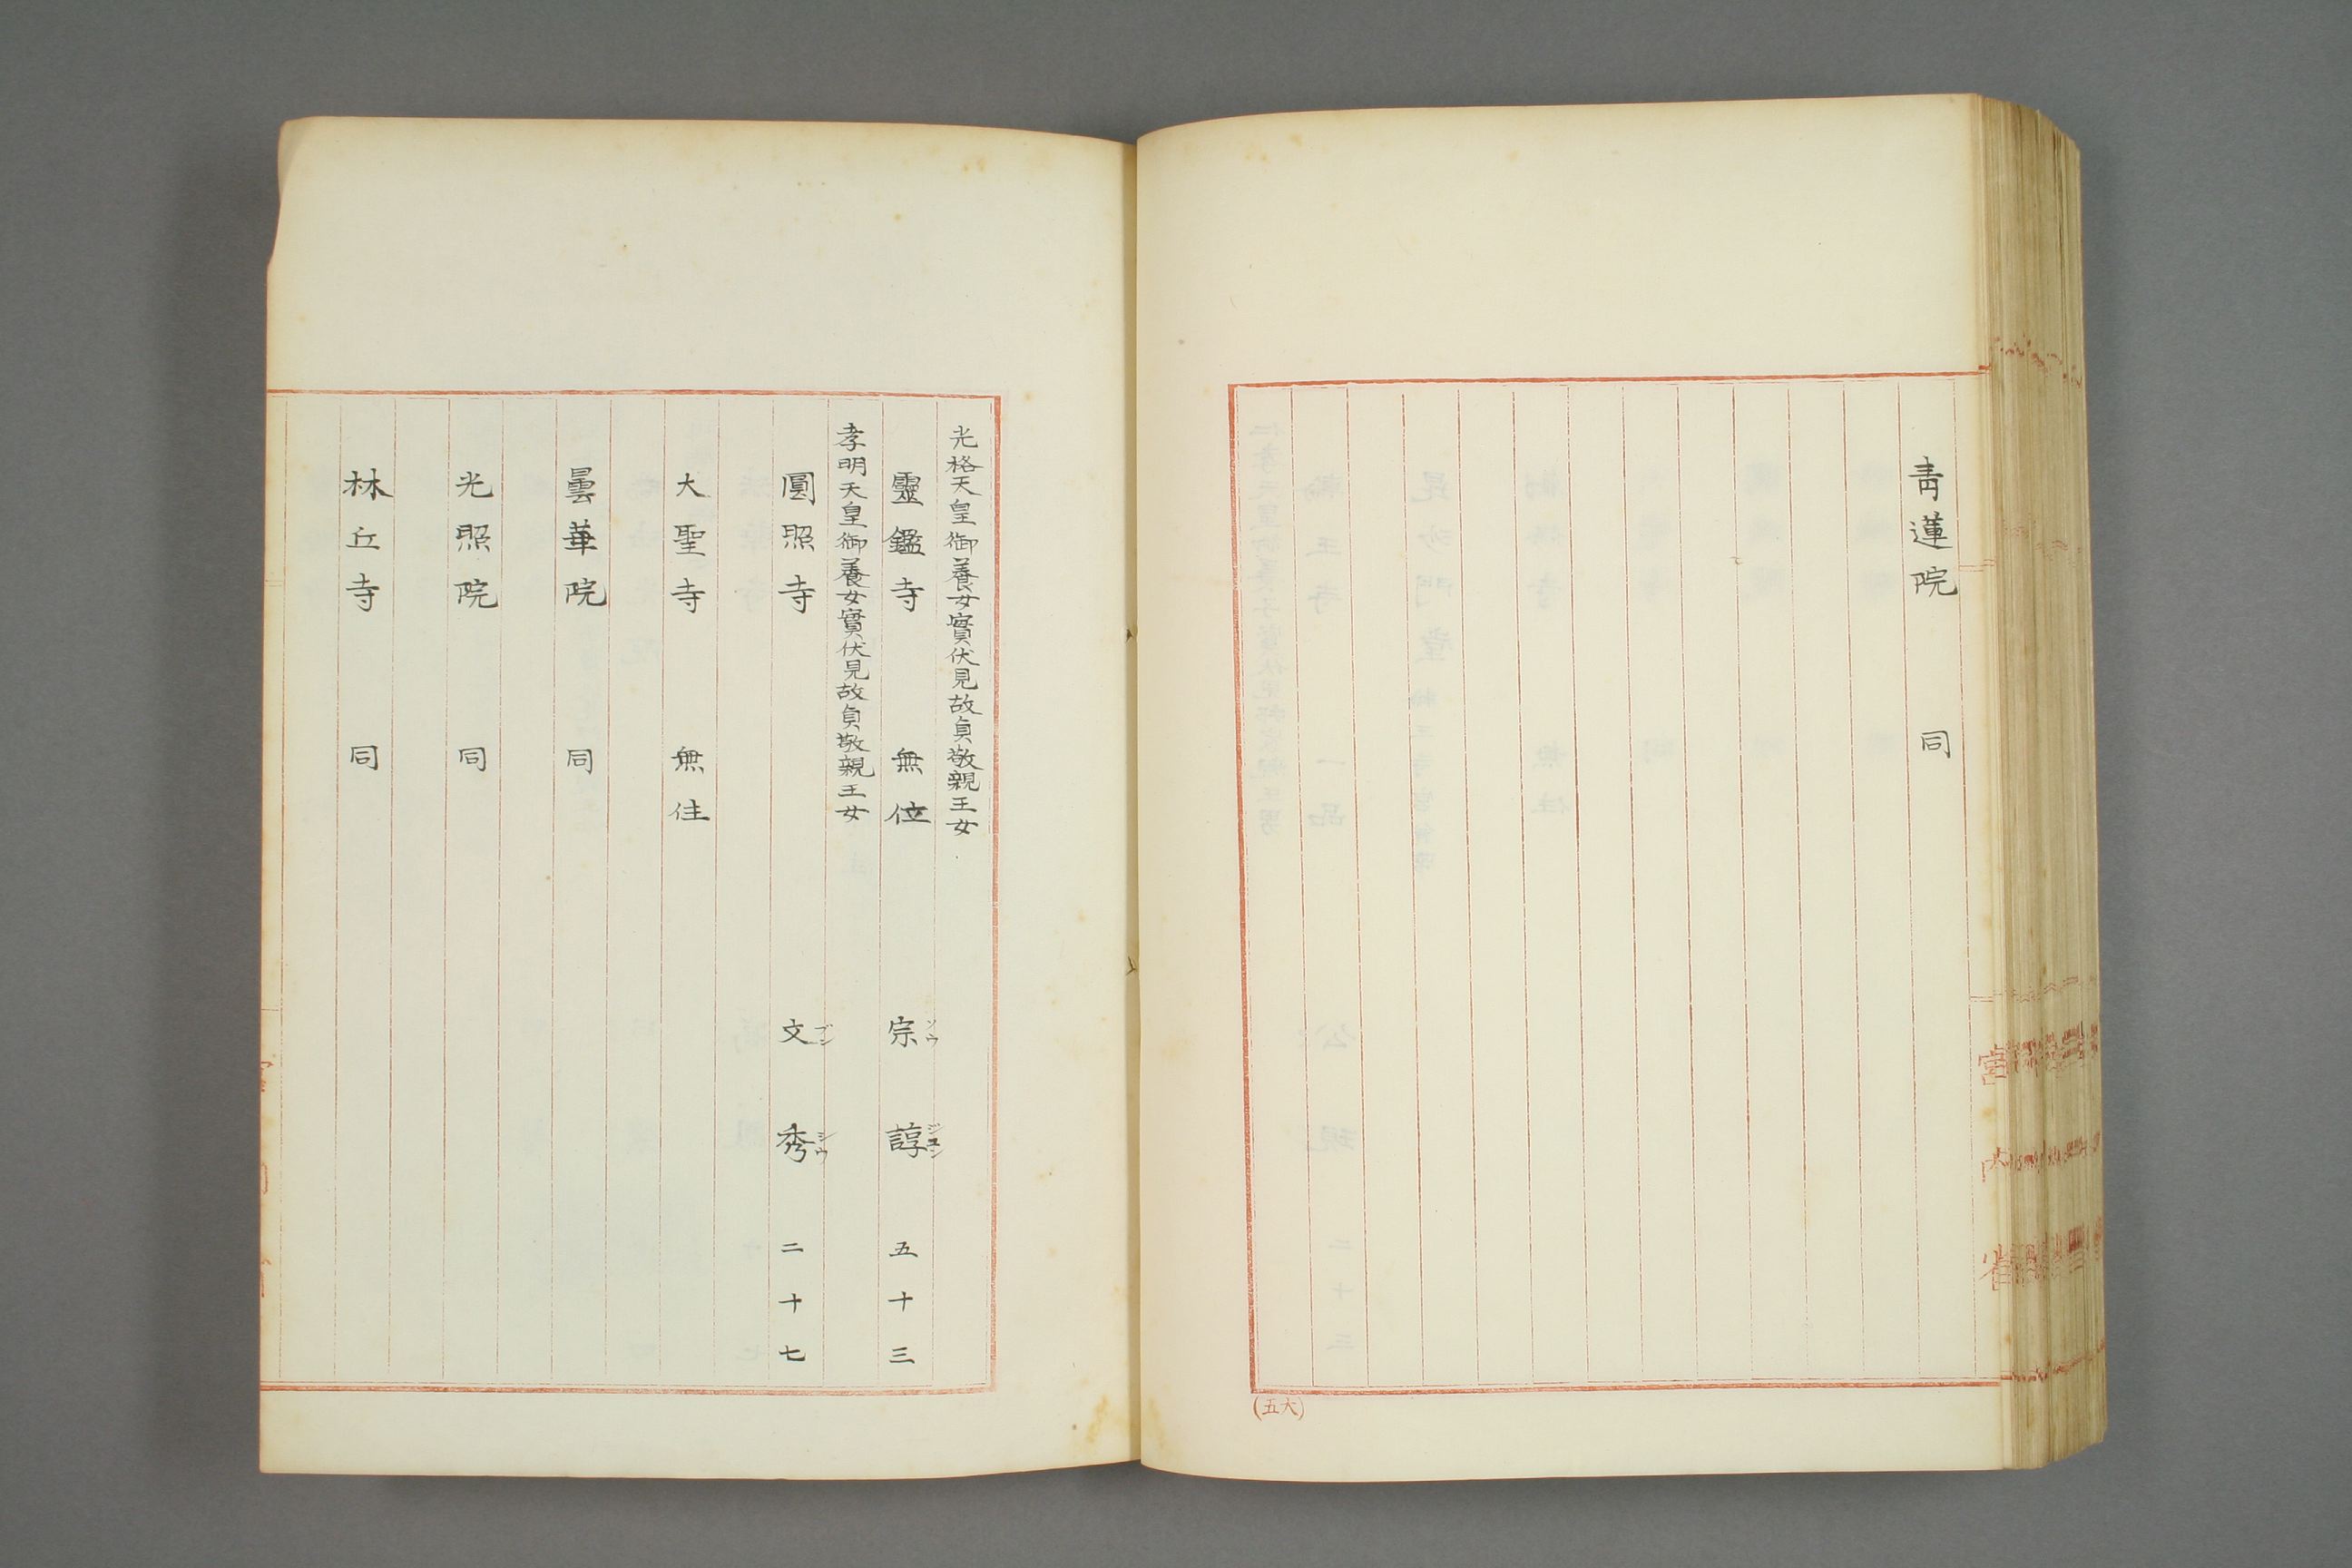 青蓮院 同
(五大)
光格天皇御養女實伏見故貞敬親王女
靈鑑寺 無位 宗諄 五十三
ソウ ジユン
孝明天皇御養女實伏見故貞敬親王女
圓照寺 文秀 二十七
ブン シウ
大聖寺 無住
曇華院 同
光照院 同
林丘寺 同
宮内省